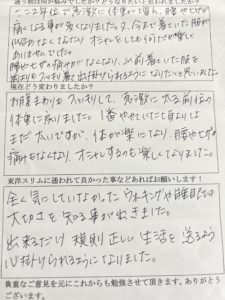 痛くなる事が多くなりました。又、今まで着ていた服が
似合わなくなったり、オシャレをしても何だか楽しく
ありませんでした。
腰やひざの痛みがなくなり、以前着ていた服を
着れるようになりたいと思いました。
現在どう変わりましたか?
お腹まわりはスッキリして、急激に太る前位の
体重に戻りました。1番やせていた頃よりは
まだ太いですが、体が楽になり、腰やひざの
痛みもなくなり、オシャレするのも楽しくなりました。
東洋スリムに通われて良かった事などあればお願いします!
全く気にしていなかったウォーキングや睡眠の
大切さを知る事が出来ました。
出来るだけ規則正しい生活を送るよう
心掛けられるようになりました。
貴重なご意見を元にこれからも勉強させて頂きます。ありがとう
ございます。